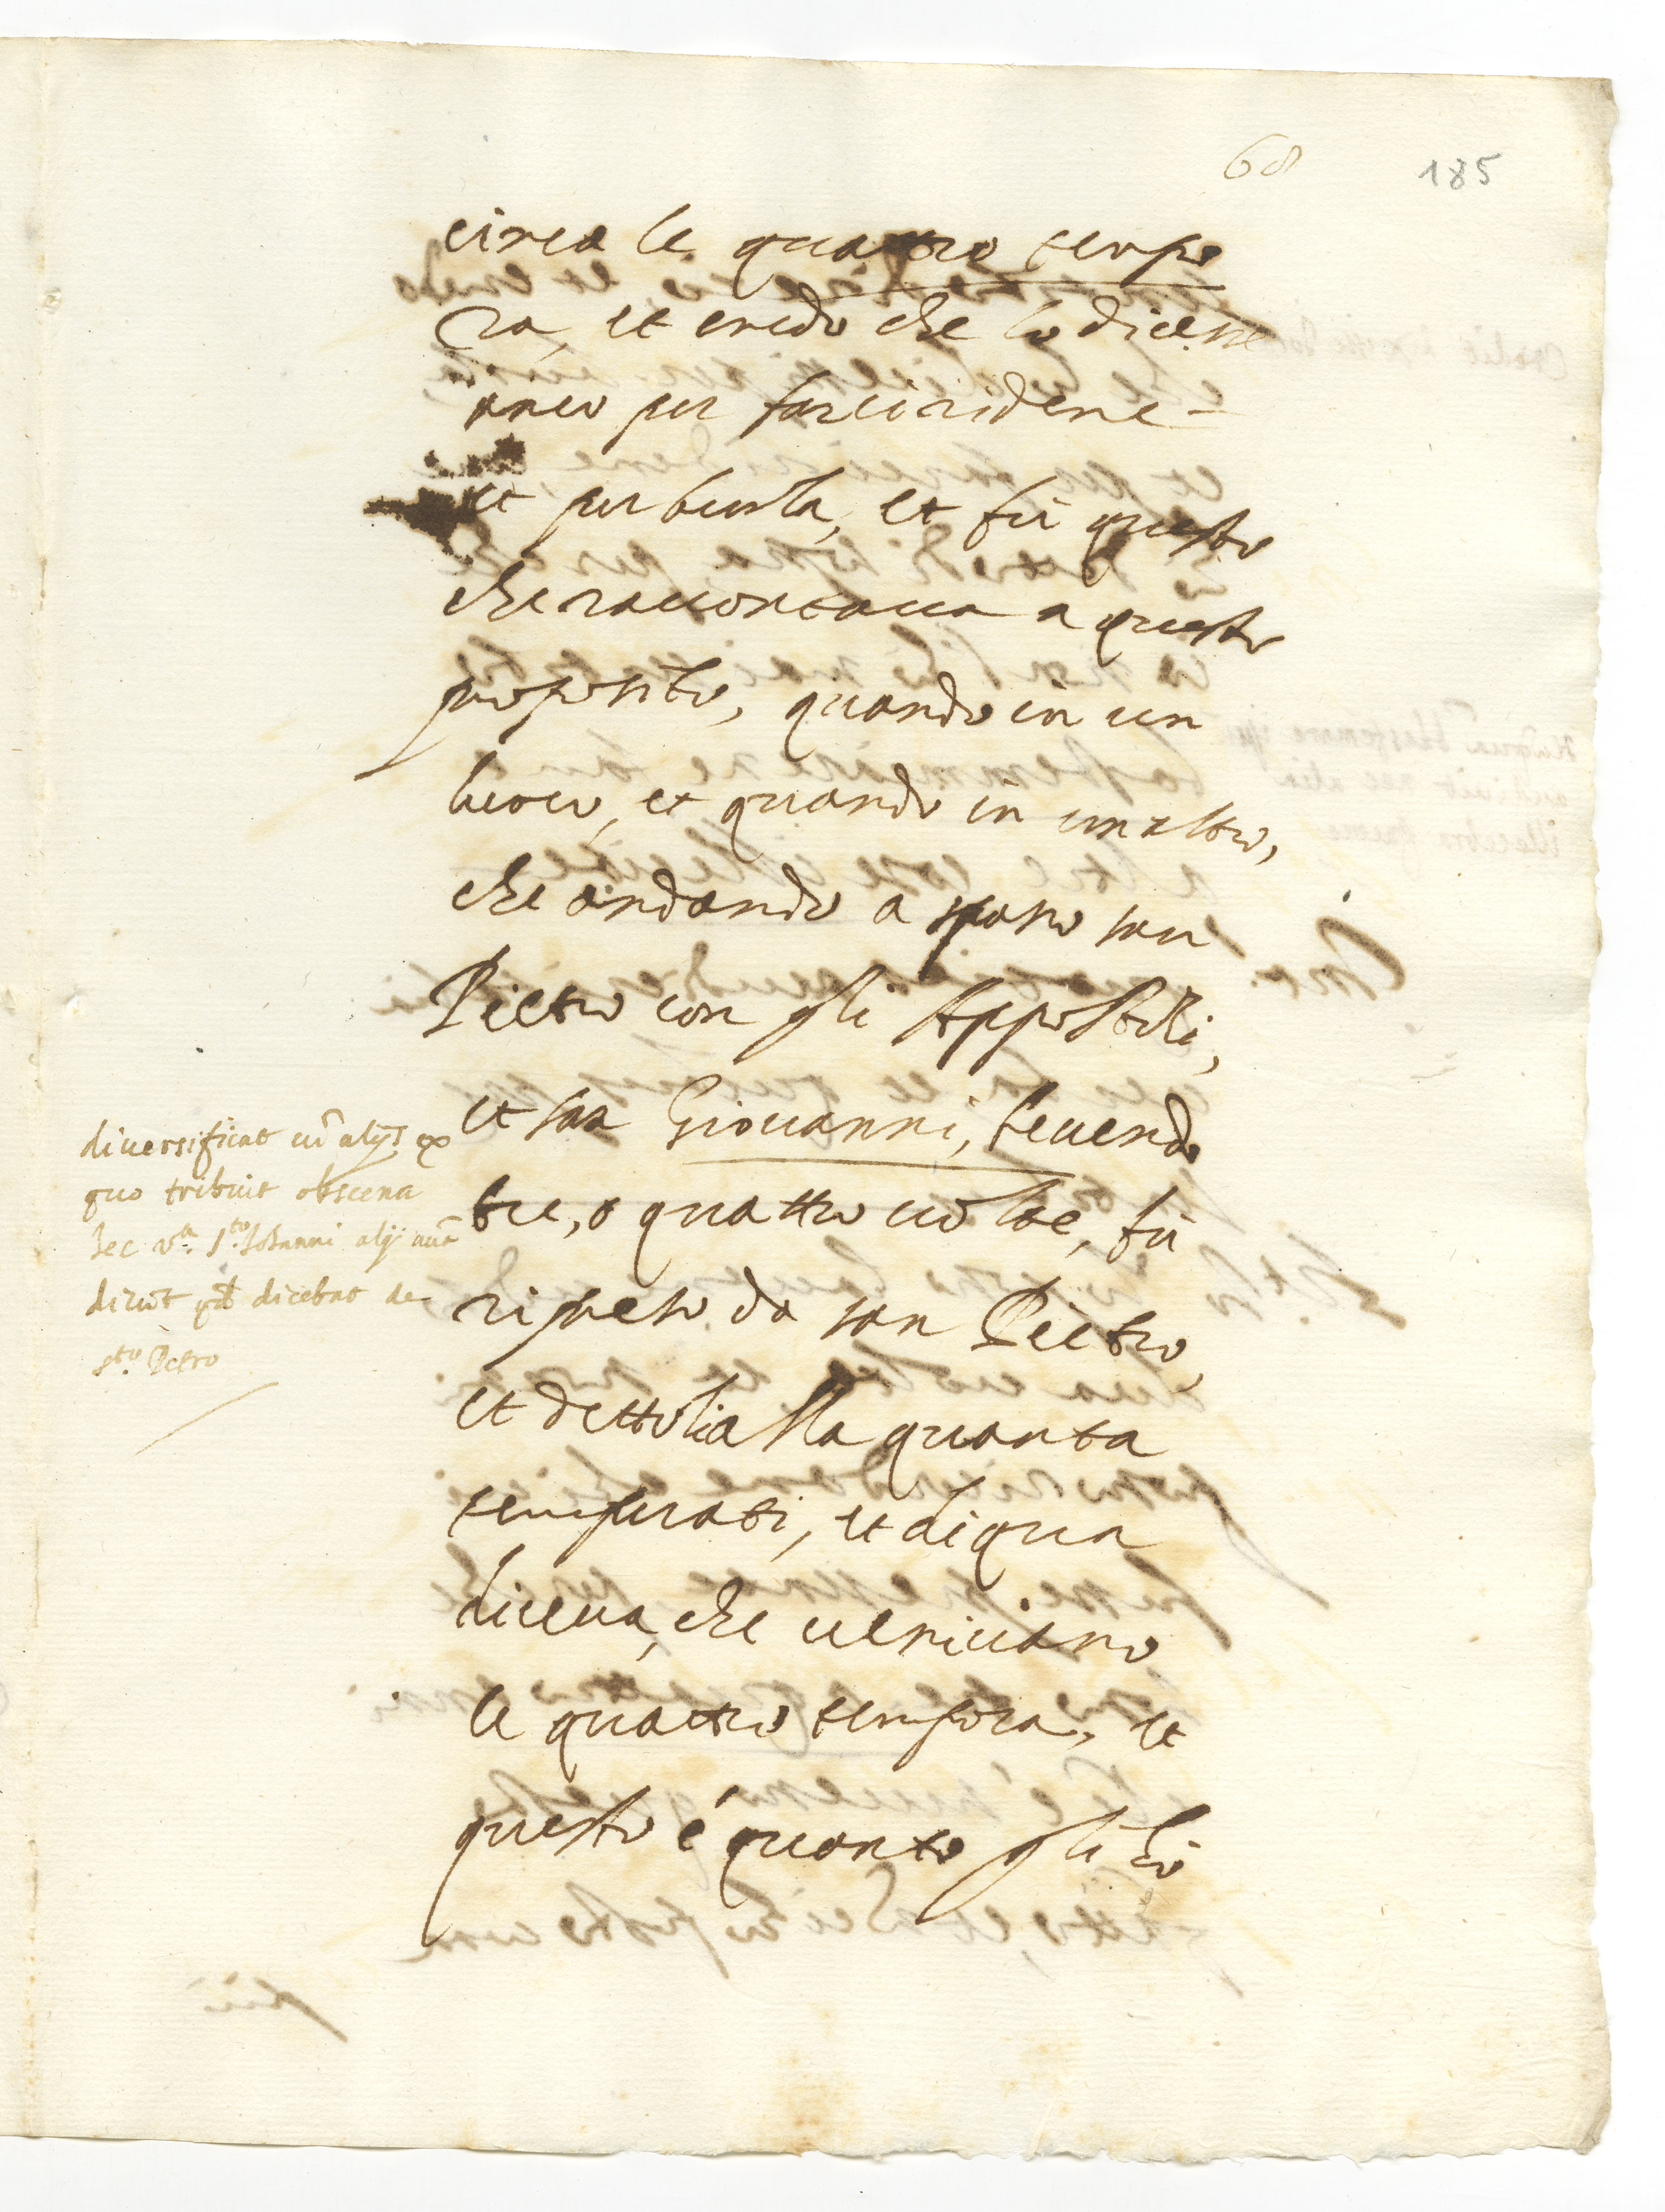 68 185
circa le quattro tempo
ra, et credo che lo dicesse
anco per farci ridere
et per burla, et fù questo
che raccontaua a questo
proposito, quando in un
luoco, et quando in un altro,
che andando a spasso san
Pietro con gli Appostoli,
et san Giouanni, beuendo
tre, o quattro uolte, fù
ripreso da san Pietro,
et dettoli alla quarta
temperati, et di qua
diceua, che ueniuano
le quattro tempora, et
questo è quanto gli hò
diuersificat cũ alijs ex
quo tribuit obscena
hec v.ª S.to Johanni alij aũt
dicũt qd dicebat de
S.to Petro